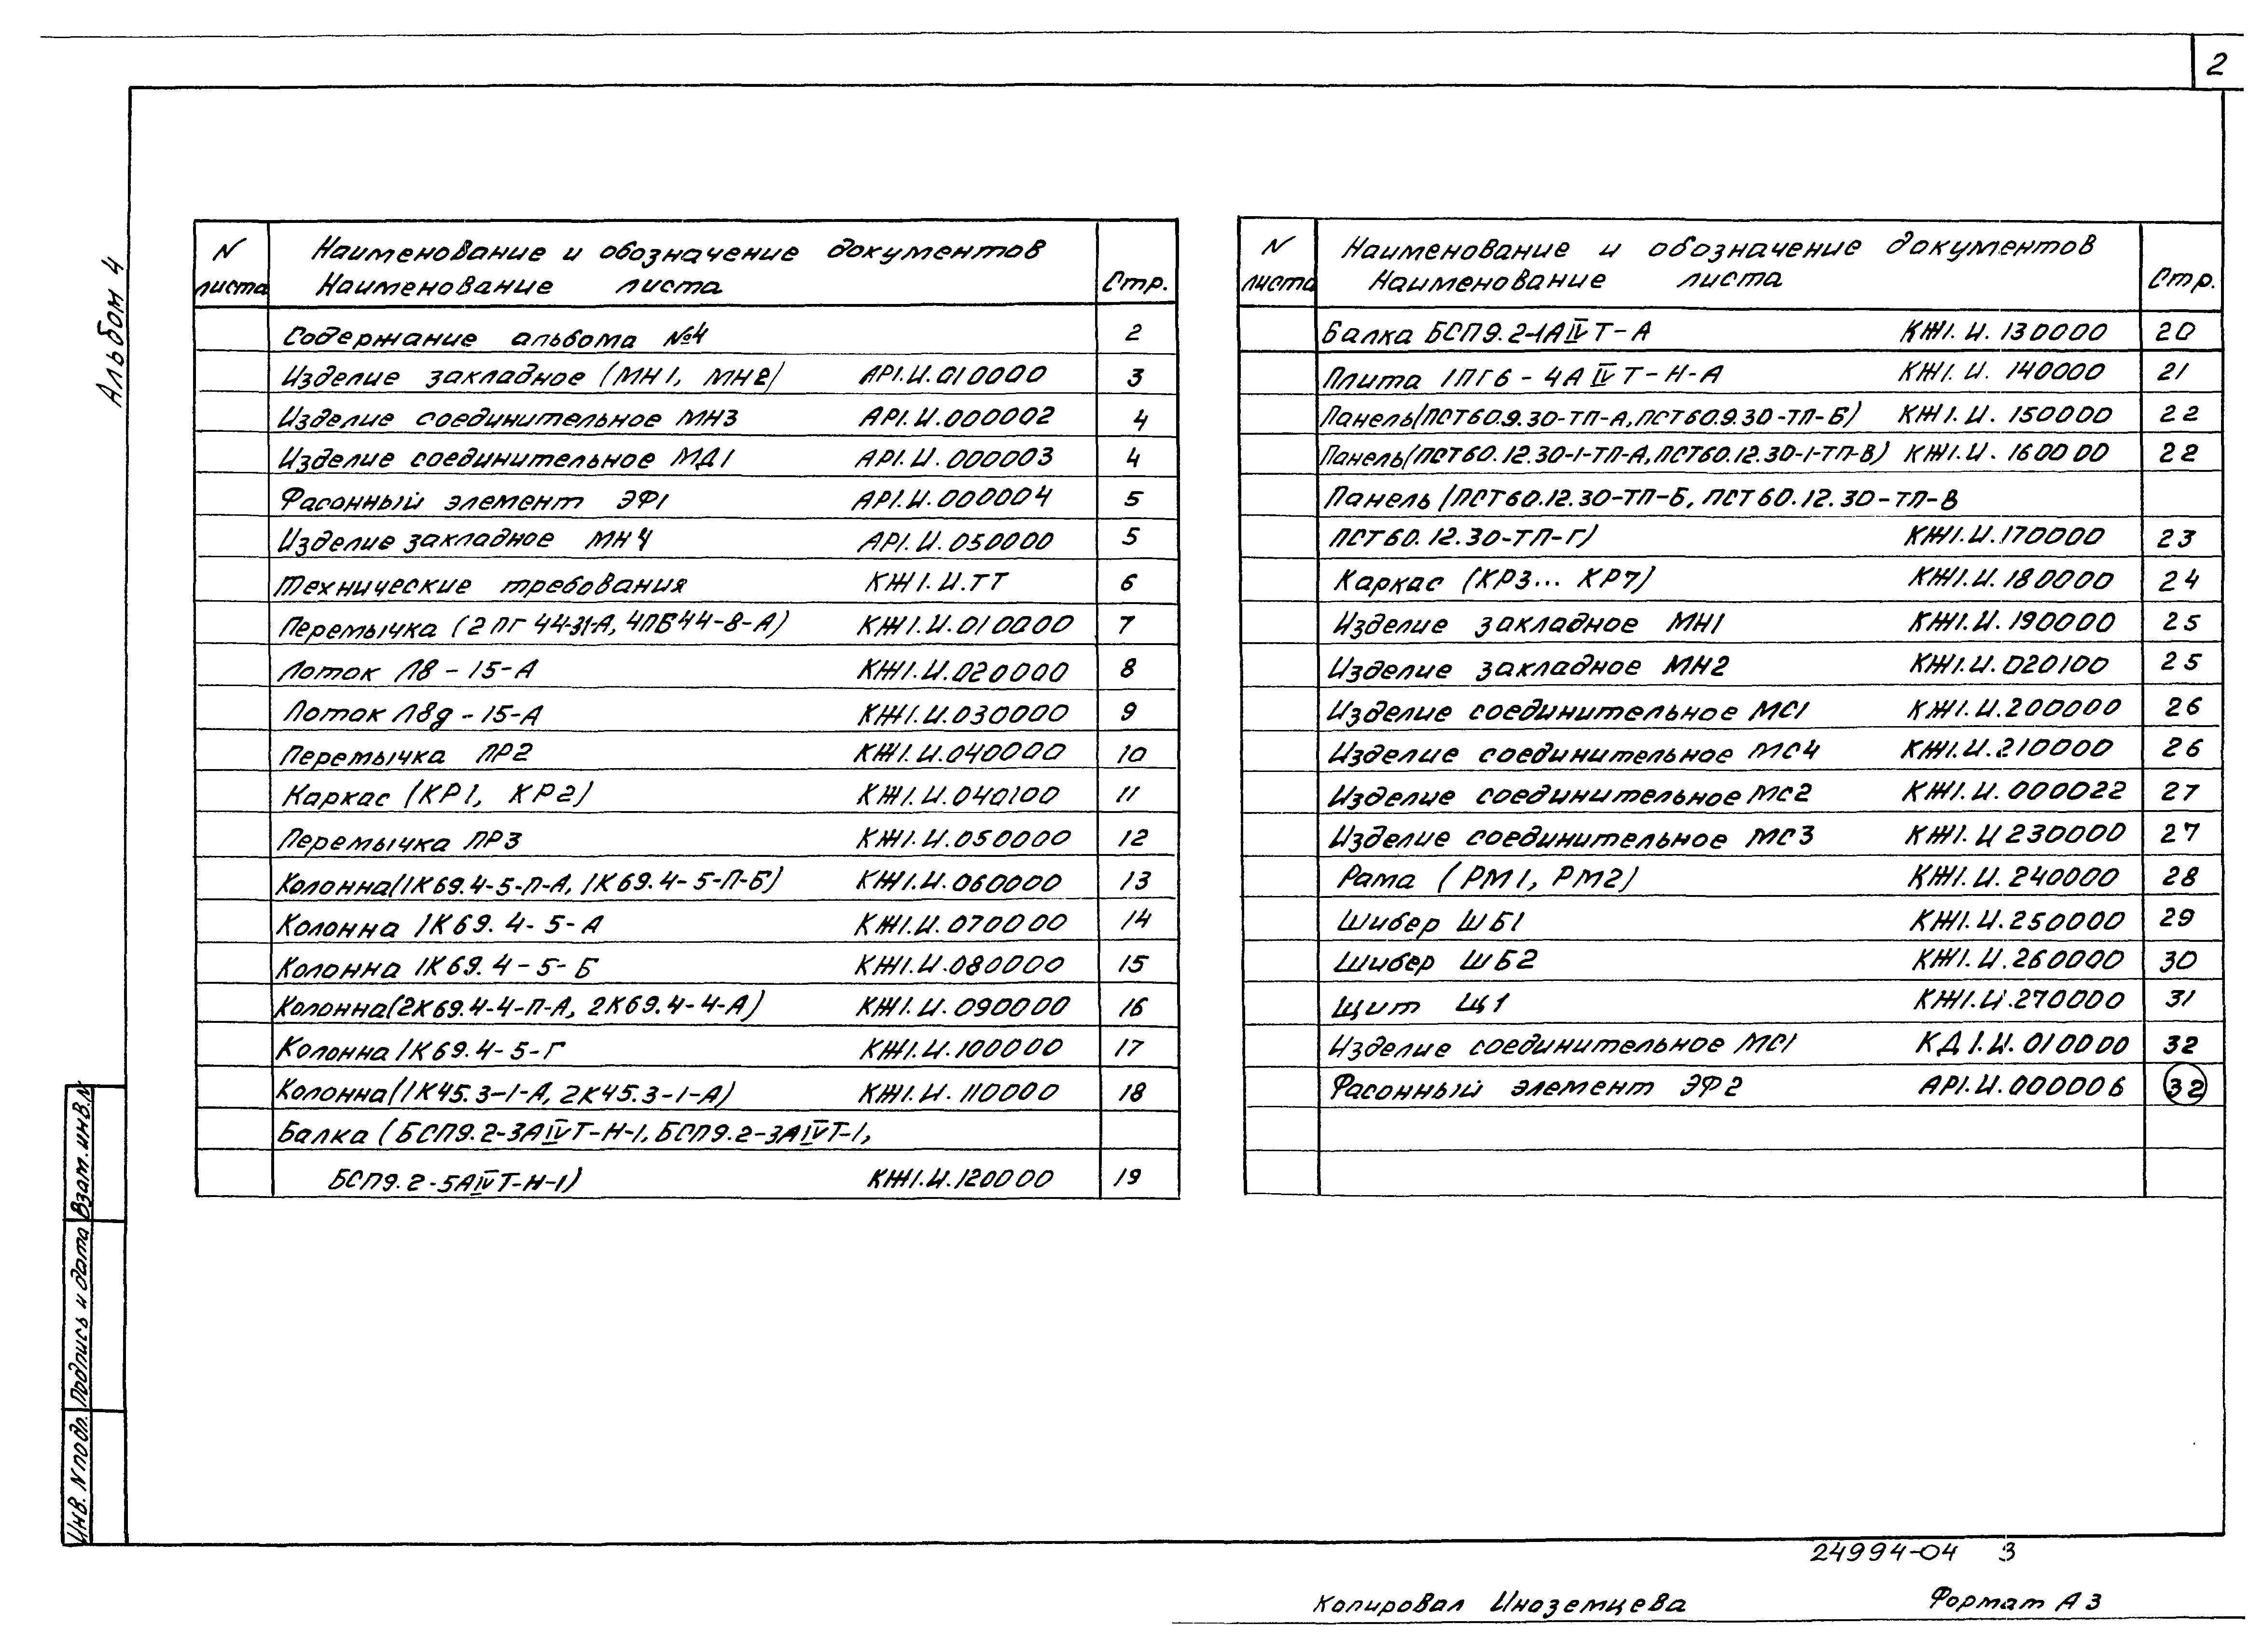 2
Альбом 4
N листа Наименование и обозначение документов Наименование листа Стр.
Содержание альбома №4 2
Изделие закладное (МН1, МН2) АР1.И.010000 3
Изделие соединительное МН3 АР1.И.000002 4
Изделие соединительное МД1 АР1.И.000003 4
Фасонный элемент ЭФ1 АР1.И.000004 5
Изделие закладное МН4 АР1.И.050000 5
Технические требования КЖ1.И.ТТ 6
Перемычка (2ПГ44-31-А, 4ПБ44-8-А) КЖ1.И.010000 7
Лоток Л8-15-А КЖ1.И.020000 8
Лоток Л8д-15-А КЖ1.И.030000 9
Перемычка ПР2 КЖ1.И.040000 10
Каркас (КР1, КР2) КЖ1.И.040100 11
Перемычка ПР3 КЖ1.И.050000 12
Колонна(1К69.4-5-П-А, 1К69.4-5-П-Б) КЖ1.И.060000 13
Колонна 1К69.4-5-А КЖ1.И.070000 14
Колонна 1К69.4-5-Б КЖ1.И.080000 15
Колонна(2К69.4-4-П-А, 2К69.4-4-А) КЖ1.И.090000 16
Колонна 1К69.4-5-Г КЖ1.И.100000 17
Колонна(1К45.3-1-А, 2К45.3-1-А) КЖ1.И.110000 18
Балка (БСП9.2-3АIVТ-Н-1, БСП9.2-3АIVТ-1,
БСП9.2-5АIVТ-Н-1) КЖ1.И.120000 19
N листа Наименование и обозначение документов Наименование листа Стр.
Балка БСП9.2-1АIVТ-А КЖ1.И.130000 20
Плита 1ПГ6-4АIVТ-Н-А КЖ1.И.140000 21
Панель(ПСТ60.9.30-ТП-А, ПСТ60.9.30-ТП-Б) КЖ1.И.150000 22
Панель(ПСТ60.12.30-1-ТП-А, ПСТ60.12.30-1-ТП-В) КЖ1.И.160000 22
Панель (ПСТ60.12.30-ТП-Б, ПСТ60.12.30-ТП-В
ПСТ60.12.30-ТП-Г) КЖ1.И.170000 23
Каркас (КР3... КР7) КЖ1.И.180000 24
Изделие закладное МН1 КЖ1.И.190000 25
Изделие закладное МН2 КЖ1.И.020100 25
Изделие соединительное МС1 КЖ1.И.200000 26
Изделие соединительное МС4 КЖ1.И.210000 26
Изделие соединительное МС2 КЖ1.И.000022 27
Изделие соединительное МС3 КЖ1.И 230000 27
Рама (РМ1, РМ2) КЖ1.И.240000 28
Шибер ШБ1 КЖ1.И.250000 29
Шибер ШБ2 КЖ1.И.260000 30
Щит Щ1 КЖ1.И.270000 31
Изделие соединительное МС1 КД1.И.010000 32
Фасонный элемент ЭФ2 АР1.И.000006 32
Инв. N подл. Подпись и дата Взам.инв.N
24994-04 3
Копировал Иноземцева Формат А3